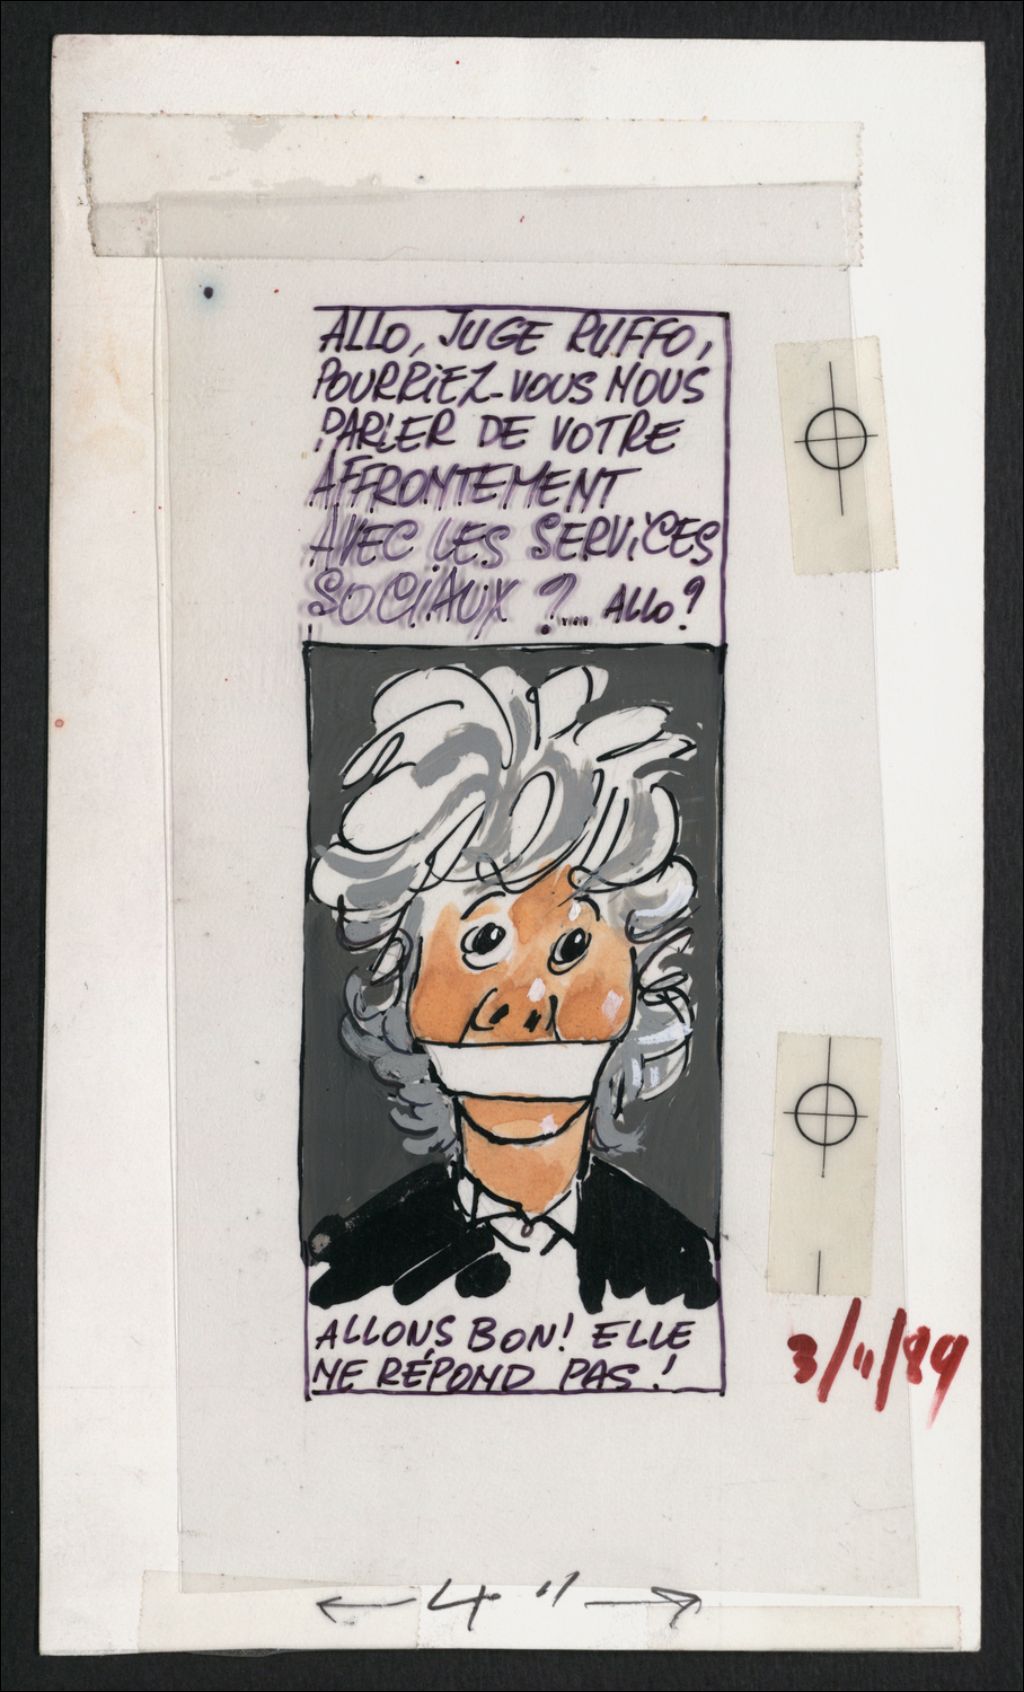 ALLO, JUGE RUFFO,
POURRIEZ-VOUS NOUS
PARLER DE VOTRE
AFFRONTEMENT
AVEC LES SERVICES
SOCIAUX ?.... ALLO?
ALLONS BON! ELLE
NE RÉPOND PAS!
3/11/89
← 4" →